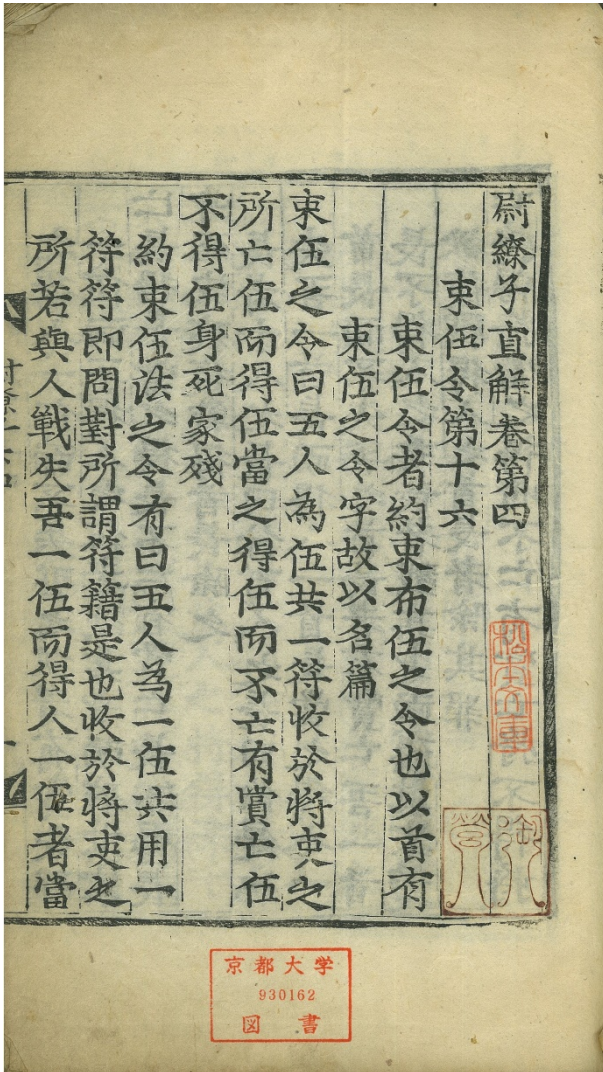 尉繚子直解卷第四
束伍令第十六
束伍令者約束布伍之令也以首有
束伍之令字故以名篇
束伍之令曰五人為伍共一符收於將吏之
所亡伍而得伍當之得伍而不亡有賞亡伍
不得伍身死家殘
約束伍法之令有曰五人為一伍共用一
符符即問對所謂符籍是也收於將吏之
所若與人戰失吾一伍而得人一伍者當
京都大学
930162
図書